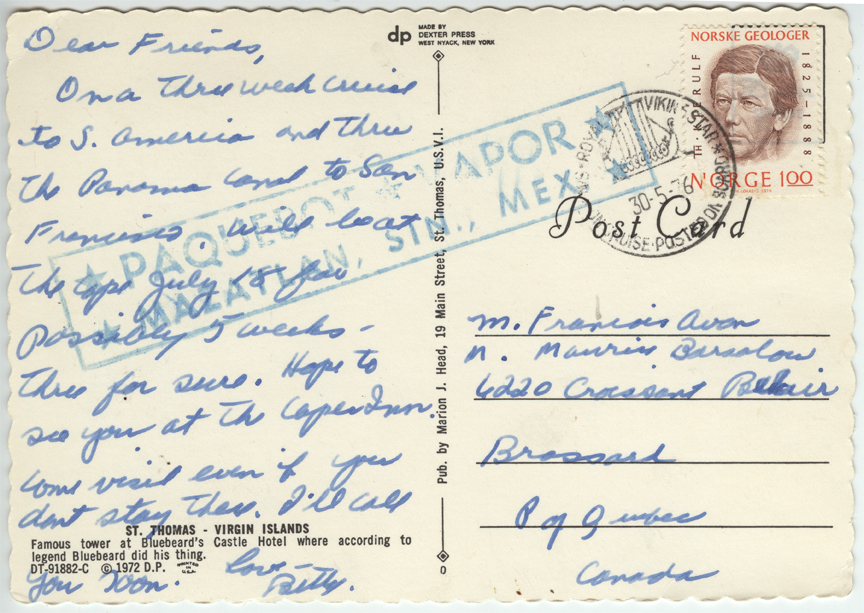 Dear Friends,
On a three week cruise
to S. America and thru
the Panama Canal to San
Francisco. Will be at
the Cape July 18 for
Possibly 5 weeks -
three for sure. Hope to
see you at the Cape Inn.
Come visit even if you
dont stay there. I'll call
you soon. Love -
Betty.
ST. THOMAS - VIRGIN ISLANDS
Famous tower at Bluebeard's Castle Hotel where according to
legend Bluebeard did his thing.
DT-91882-C © 1972 D.P. PRINTED IN U.S.A.
★ PAQUEBOT ★ VAPOR ★
★ MAZATLAN, SIN., MEX. ★
dp MADE BY
DEXTER PRESS
WEST NYACK, NEW YORK
Pub. by Marion J. Head, 19 Main Street, St. Thomas, U.S.V.I.
NORSKE GEOLOGER
TH. KJERULF
1825-1888
NORGE 100
30-5-76
Post Card
M. Francois Avon
M. Maurice
6220 Croissant Belair
Brossard
P of Quebec
Canada